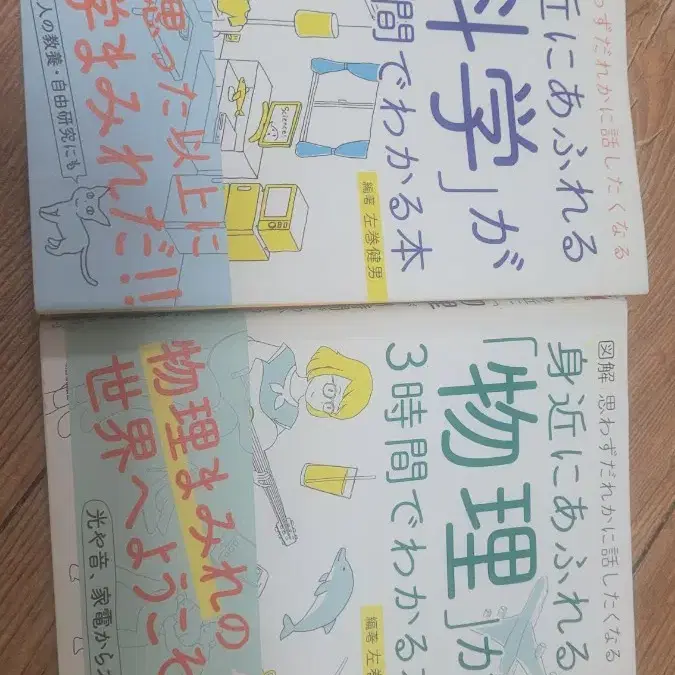 わずだれかに話したくなる
近にあふれる
科学」が
間でわかる本
編著 左巻健男
Science
思った以上に
学まみれだ!!
人の教養・自由研究にも
図解 思わずだれかに話したくなる
身近にあふれる
「物理」が
3時間でわかる
編著 左巻
物理まみれの
世界へようこそ
光や音、家電から